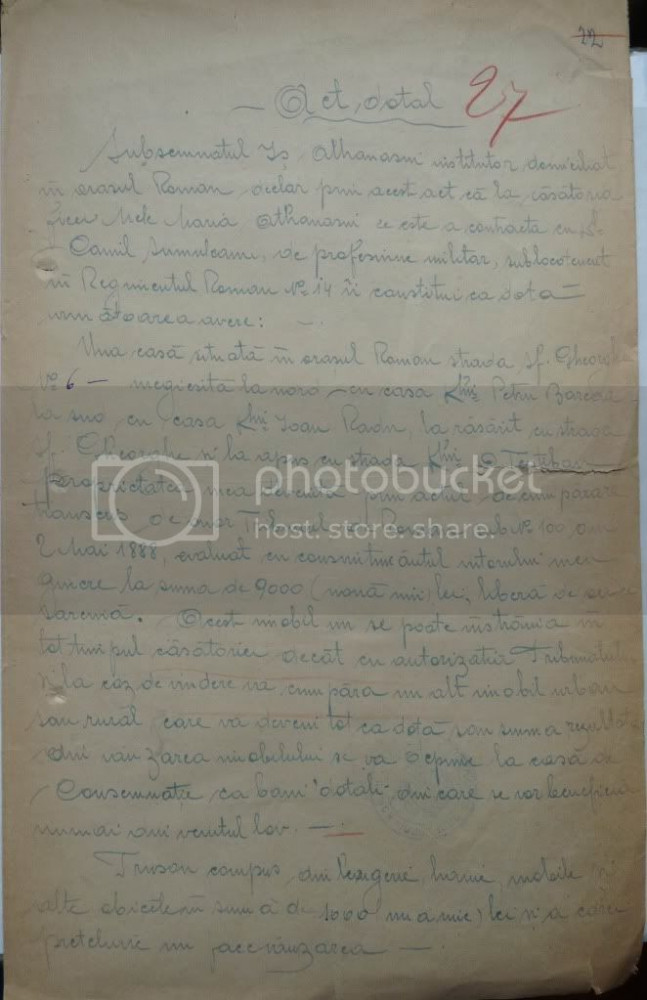 22
— Act dotal 27
Subsemnatul Iș. Athanasiu institutor domiciliat
în orașul Roman declar prin acest act că la căsătoria
ficei mele Maria Athanasiu ce este a contracta cu
Camil de profesiune militar, sublocotenent
în Regimentul Roman No 14 îi constitui ca dota
următoarea avere: —.
Una casă situată în orașul Roman strada Sf. Gheorghe
No 6 — megieșită la nord — cu casa Petru
la sud, cu casa Ioan Radu, la răsărit cu strada
Sf. Gheorghe și la apus cu strada
proprietatea mea devenită prin actul de cumpărare
transcris de onor. Tribunal Roman sub No 100, din
2 Mai 1888, evaluat cu consimțimântul viitorului meu
ginere la suma de 9000 (nouă mii) lei, liberă de
sarcină. Acest imobil nu se poate înstrăina în
tot timpul căsătoriei decât cu autorizația Tribunalului
și la caz de vindere va cumpăra un alt imobil urban
sau rural care va deveni tot ca dotă sau suma rezultată
din vânzarea imobilului se va depune la casa de
Consemnație ca bani dotali din care se vor beneficia
numai din venitul lor. —.
Trusou compus din lexgerie, haine, mobile și
alte obiecte în sumă de 1000 (una mie) lei și a
prețeluire nu face vânzarea —.
photobucket
host. store. share.